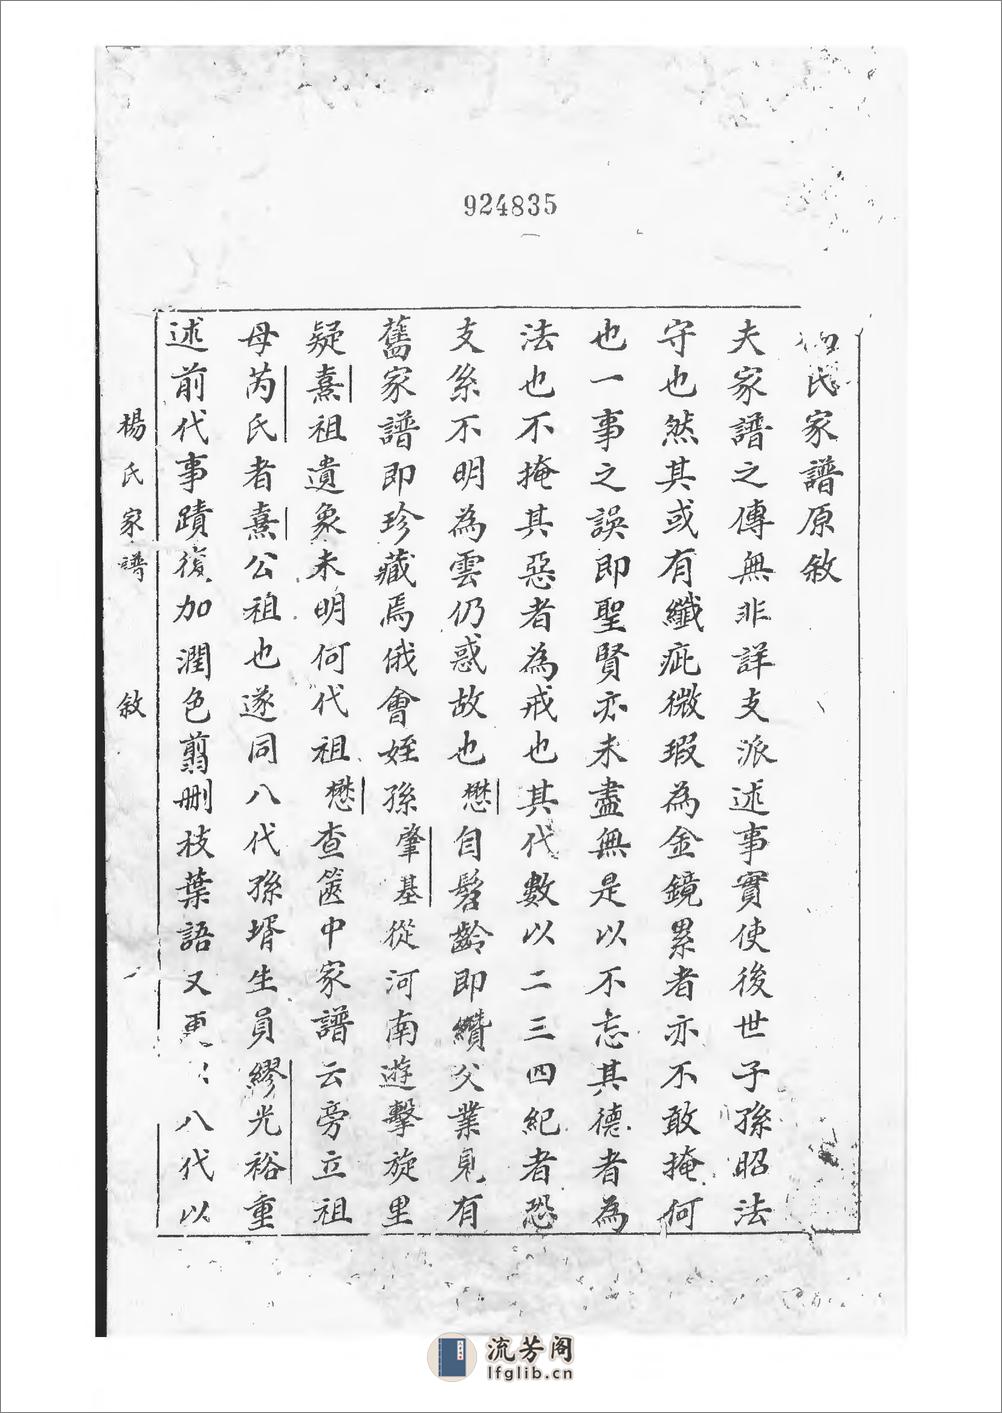 924835
氏家譜原敘
夫家譜之傳無非詳支派述事實使後世子孫昭法
守也然其或有纖疵微瑕為金鏡累者亦不敢掩何
也一事之誤即聖賢亦未盡無是以不忘其德者為
法也不掩其惡者為戒也其代數以二三四紀者恐
支系不明為雲仍惑故也懋自髫齡即纘父業見有
舊家譜即珍藏焉俄會姪孫肇基從河南遊擊旋里
疑熹祖遺象未明何代祖懋查篋中家譜云旁立祖
母芮氏者熹公祖也遂同八代孫壻生員繆光裕重
述前代事蹟復加潤色翦刪枝葉語又更八代以
楊氏家譜 敘
流芳阁
lfglib.cn